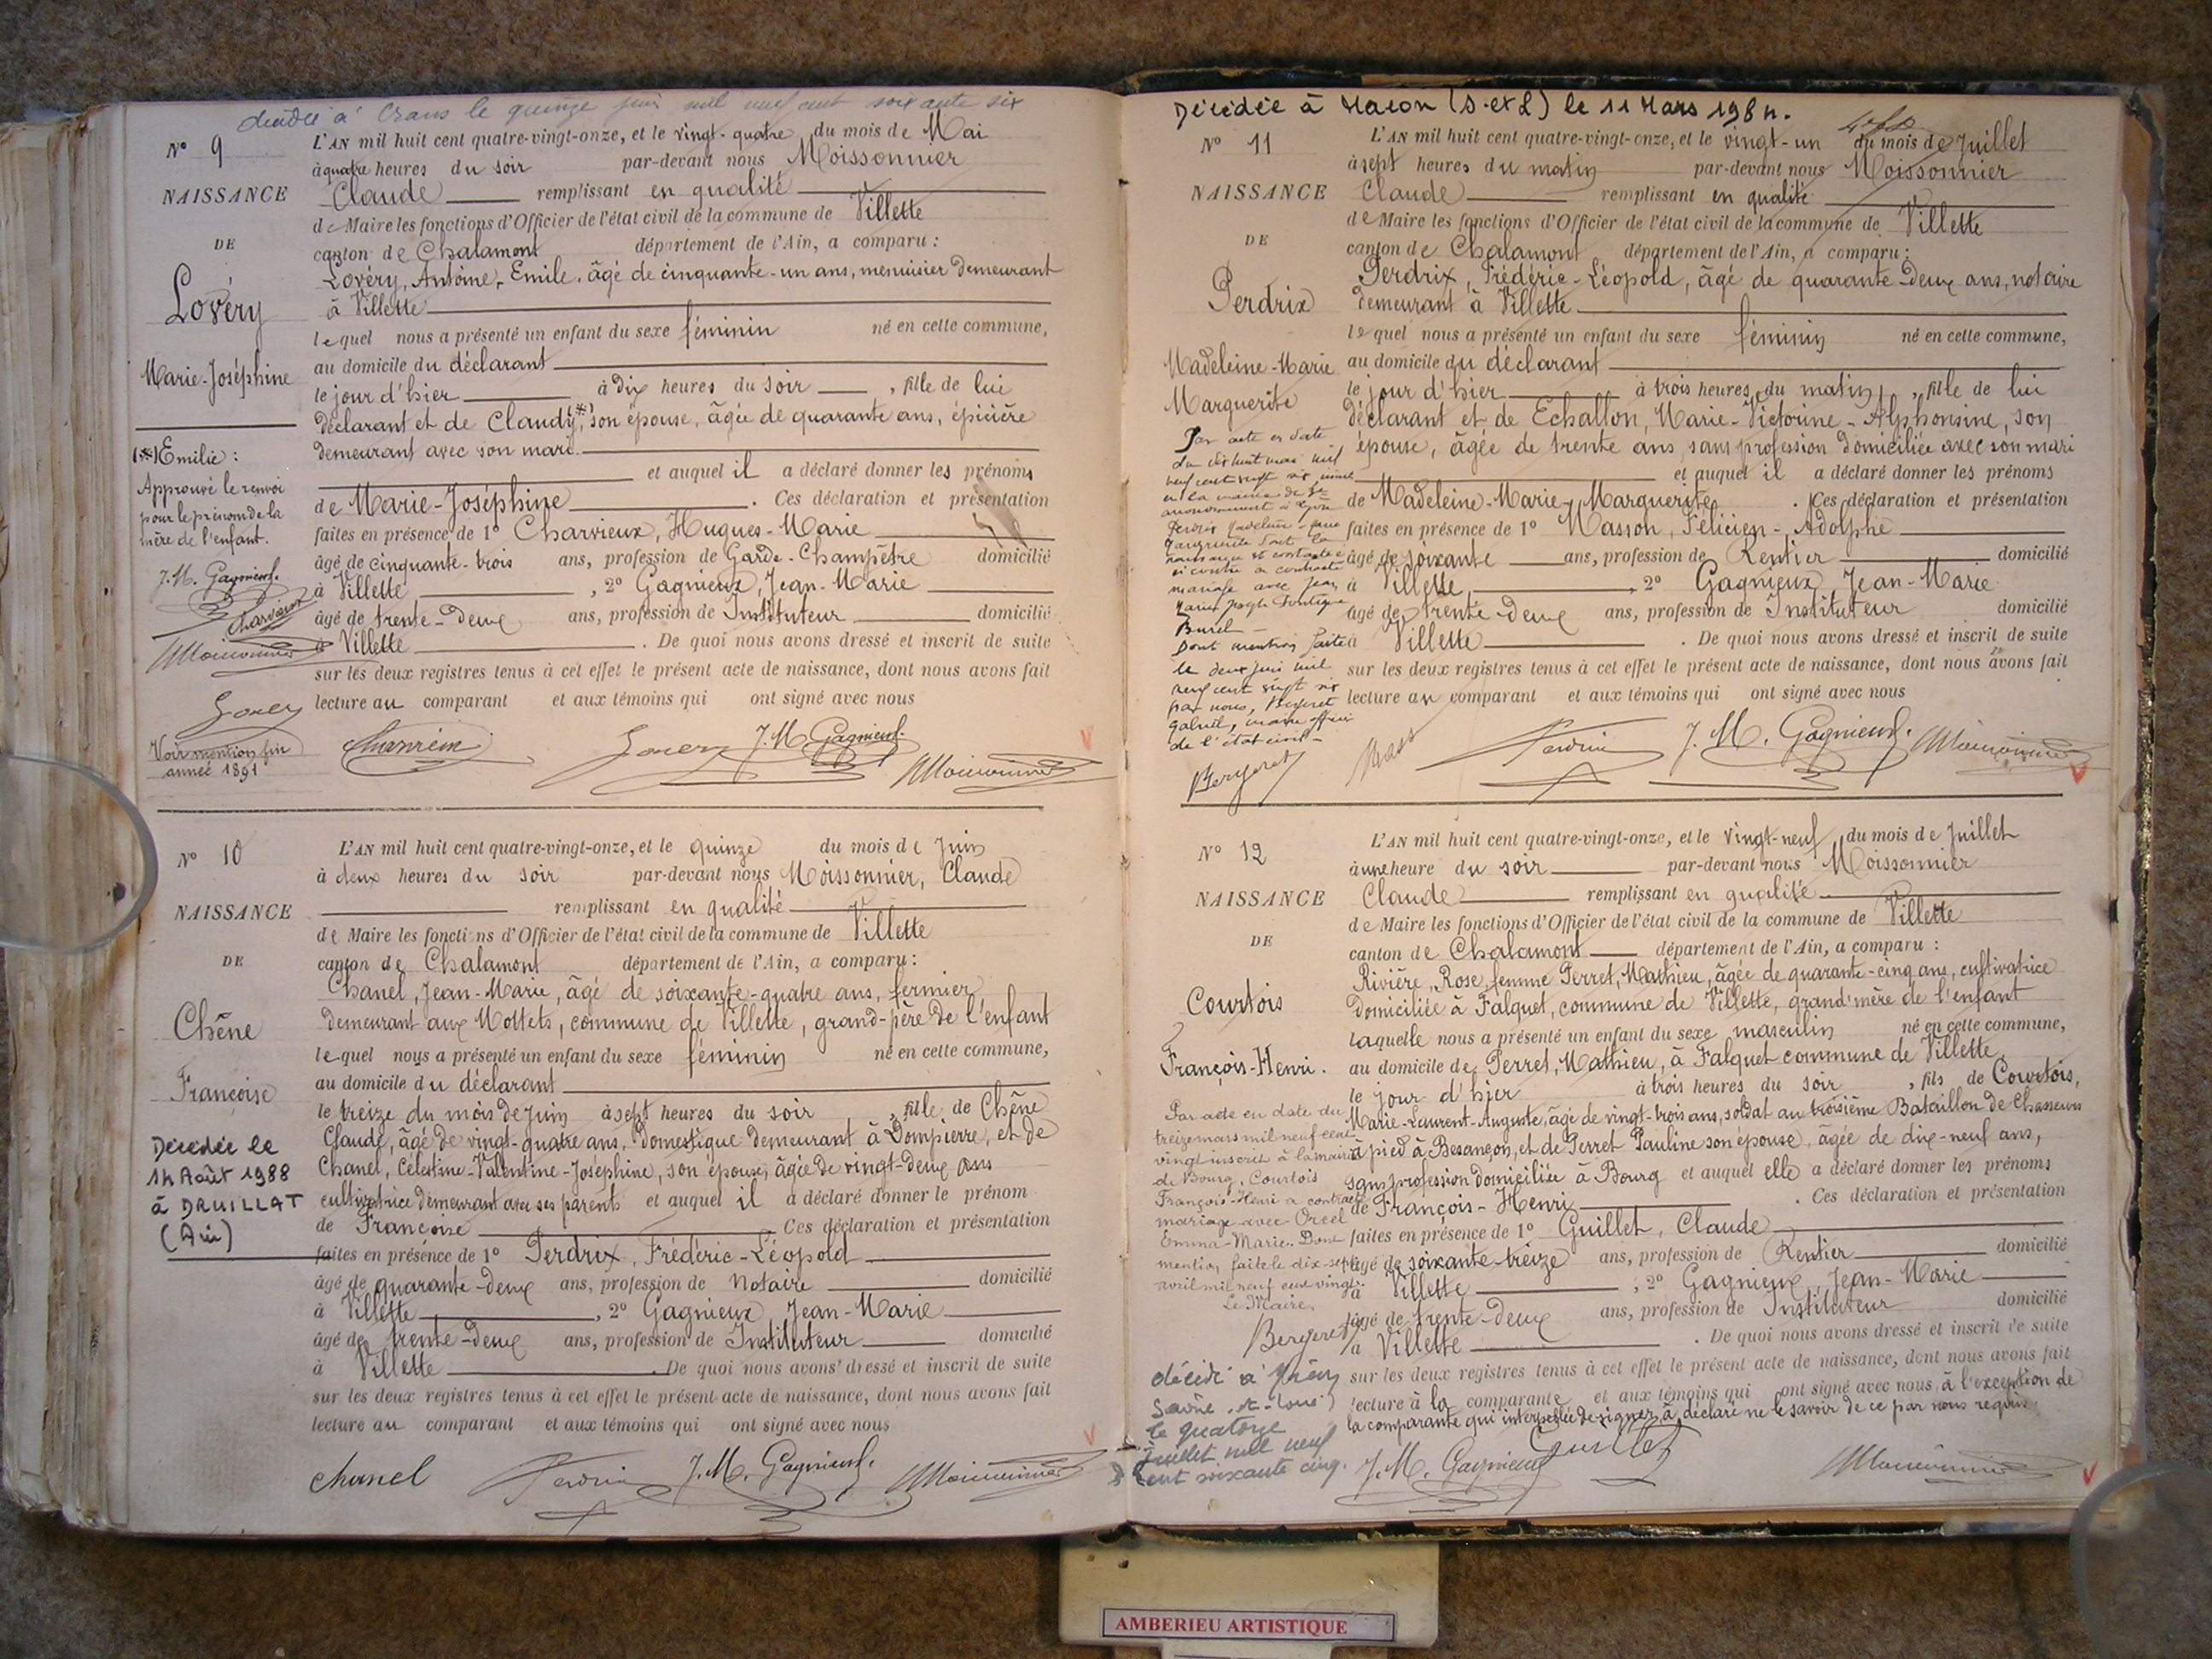 décédée à Crans le quinze juin mil neuf cent soixante six
N° 9
NAISSANCE
DE
Lovéry
Marie-Joséphine
(*) Emilie :
Approuvé le renvoi
pour le prénom de la
mère de l'enfant.
J.M. Gagnieux.
Charvieux
Moissonnier
Lovéry
Voir mention fin
année 1891
L'AN mil huit cent quatre-vingt-onze, et le vingt-quatre du mois de Mai
à quatre heures du soir par-devant nous Moissonnier
Claude remplissant en qualité
de Maire les fonctions d'Officier de l'état civil de la commune de Villette
canton de Chalamont département de l'Ain, a comparu :
Lovéry, Antoine, Emile, âgé de cinquante-un ans, menuisier demeurant
à Villette
lequel nous a présenté un enfant du sexe féminin né en cette commune,
au domicile du déclarant
le jour d'hier à dix heures du soir , fille de lui
déclarant et de Claudy (*), son épouse, âgée de quarante ans, épicière
demeurant avec son mari.
et auquel il a déclaré donner les prénoms
de Marie-Joséphine . Ces déclaration et présentation
faites en présence de 1° Charvieux, Hugues-Marie
âgé de cinquante-trois ans, profession de Garde-Champêtre domicilié
à Villette , 2° Gagnieux, Jean-Marie
âgé de trente-deux ans, profession de Instituteur domicilié
à Villette . De quoi nous avons dressé et inscrit de suite
sur les deux registres tenus à cet effet le présent acte de naissance, dont nous avons fait
lecture au comparant et aux témoins qui ont signé avec nous
Charvieux Lovéry J.M. Gagnieux. Moissonnier
N° 10
NAISSANCE
DE
Chêne
Françoise
Décédée le
14 Août 1988
à DRUILLAT
(Ain)
L'AN mil huit cent quatre-vingt-onze, et le quinze du mois de Juin
à deux heures du soir par-devant nous Moissonnier, Claude
remplissant en qualité
de Maire les fonctions d'Officier de l'état civil de la commune de Villette
canton de Chalamont département de l'Ain, a comparu :
Chanel, Jean-Marie, âgé de soixante-quatre ans, fermier
demeurant aux Mottets, commune de Villette, grand-père de l'enfant
lequel nous a présenté un enfant du sexe féminin né en cette commune,
au domicile du déclarant
le treize du mois de Juin à sept heures du soir , fille de Chêne
Claude, âgé de vingt-quatre ans, domestique demeurant à Dompierre, et de
Chanel, Célestine-Valentine-Joséphine, son épouse, âgée de vingt-deux ans
cultivatrice demeurant avec ses parents et auquel il a déclaré donner le prénom
de Françoise Ces déclaration et présentation
faites en présence de 1° Perdrix, Frédéric-Léopold
âgé de quarante-deux ans, profession de Notaire domicilié
à Villette , 2° Gagnieux, Jean-Marie
âgé de trente-deux ans, profession de Instituteur domicilié
à Villette . De quoi nous avons dressé et inscrit de suite
sur les deux registres tenus à cet effet le présent acte de naissance, dont nous avons fait
lecture au comparant et aux témoins qui ont signé avec nous
Chanel Perdrix J.M. Gagnieux. Moissonnier
Décédée à Macon (S. et L) le 11 Mars 1984.
N° 11
NAISSANCE
DE
Perdrix
Madeleine-Marie
Marguerite
Par acte en date
du dix huit mai mil
neuf cent vingt six inscrit
en la mairie du 2e
arrondissement à Lyon
Perdrix Madeleine-Marie
Marguerite dont la
naissance est constatée
ci contre a contracté
mariage avec Jean
Marie Joseph
Burel
Dont mention faite
le deux juin mil
neuf cent vingt six
par nous, Bergeret
Gabriel, maire officier
de l'état civil
Bergeret
L'AN mil huit cent quatre-vingt-onze, et le vingt-un du mois de Juillet
à sept heures du matin par-devant nous Moissonnier
Claude remplissant en qualité
de Maire les fonctions d'Officier de l'état civil de la commune de Villette
canton de Chalamont département de l'Ain, a comparu :
Perdrix, Frédéric-Léopold, âgé de quarante-deux ans, notaire
demeurant à Villette
lequel nous a présenté un enfant du sexe féminin né en cette commune,
au domicile du déclarant
le jour d'hier à trois heures du matin , fille de lui
déclarant et de Echallon, Marie-Victorine-Alphonsine, son
épouse, âgée de trente ans sans profession domiciliée avec son mari
et auquel il a déclaré donner les prénoms
de Madeleine-Marie-Marguerite . Ces déclaration et présentation
faites en présence de 1° Masson, Félicien-Adolphe
âgé de soixante ans, profession de Rentier domicilié
à Villette, , 2° Gagnieux, Jean-Marie
âgé de trente-deux ans, profession de Instituteur domicilié
à Villette . De quoi nous avons dressé et inscrit de suite
sur les deux registres tenus à cet effet le présent acte de naissance, dont nous avons fait
lecture au comparant et aux témoins qui ont signé avec nous
Perdrix J.M. Gagnieux. Moissonnier
N° 12
NAISSANCE
DE
Courtois
François-Henri.
Par acte en date du
treize mars mil neuf cent
vingt inscrit à la mairie
de Bourg, Courtois
François-Henri a contracté
mariage avec Orcel
Emma-Marie. Dont
mention faite le dix-sept
avril mil neuf cent vingt.
Le Maire,
Bergeret
décédé à
Saône-et-Loire)
le quatorze
juillet mil neuf
cent soixante cinq.
L'AN mil huit cent quatre-vingt-onze, et le vingt-neuf du mois de Juillet
à une heure du soir par-devant nous Moissonnier
Claude remplissant en qualité
de Maire les fonctions d'Officier de l'état civil de la commune de Villette
canton de Chalamont département de l'Ain, a comparu :
Rivière, Rose, femme Perret, Mathieu, âgée de quarante-cinq ans, cultivatrice
domiciliée à Falquet, commune de Villette, grand'mère de l'enfant
laquelle nous a présenté un enfant du sexe masculin né en cette commune,
au domicile de Perret, Mathieu, à Falquet commune de Villette
le jour d'hier à trois heures du soir , fils de Courtois,
Marie-Laurent-Auguste, âgé de vingt-trois ans, soldat au troisième Bataillon de Chasseurs
à pied à Besançon, et de Perret Pauline son épouse, âgée de dix-neuf ans,
sans profession domiciliée à Bourg et auquel elle a déclaré donner les prénoms
de François-Henri . Ces déclaration et présentation
faites en présence de 1° Guillet, Claude
âgé de soixante-treize ans, profession de Rentier domicilié
à Villette ; 2° Gagnieux, Jean-Marie
âgé de trente-deux ans, profession de Instituteur domicilié
à Villette . De quoi nous avons dressé et inscrit de suite
sur les deux registres tenus à cet effet le présent acte de naissance, dont nous avons fait
lecture à la comparante et aux témoins qui ont signé avec nous, à l'exception de
la comparante qui interpellée de signer, a déclaré ne le savoir de ce par nous requis.
J.M. Gagnieux Guillet Moissonnier
AMBERIEU ARTISTIQUE